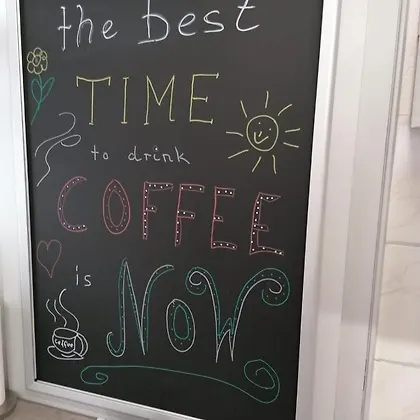 the best
TIME
to drink
COFFEE
is
NOW
coffee